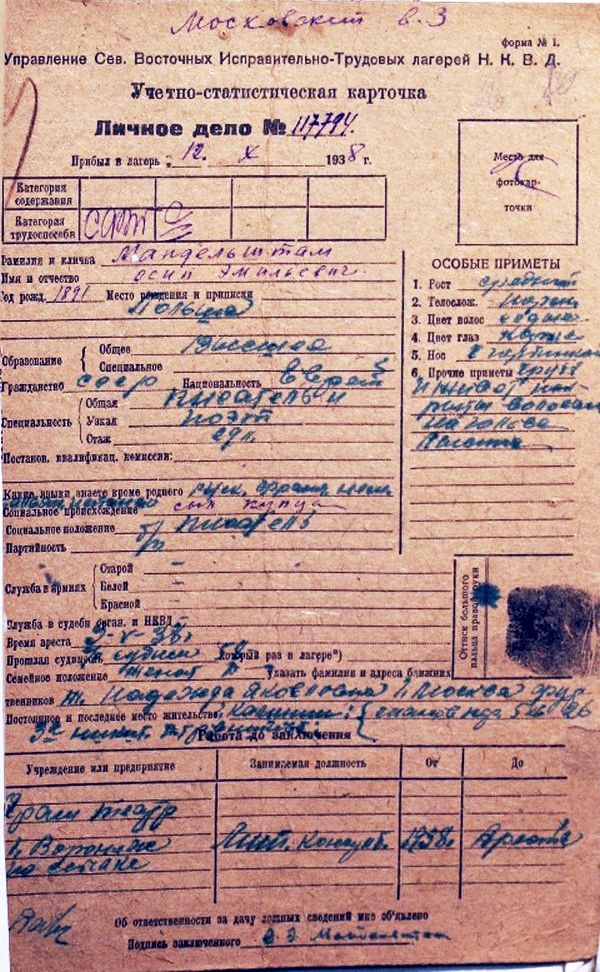 Московский в. 3
форма № 1.
Управление Сев. Восточных Исправительно-Трудовых лагерей Н. К. В. Д.
Учетно-статистическая карточка
Личное дело № 117794.
Прибыл в лагерь „ 12. X 1938 г.
Место для фотокарточки
Категория содержания
Категория трудоспособн
Фамилия и кличка Мандельштам
Имя и отчество Осип Эмильевич
Год рожд. 1891 Место рождения и приписки
Польша
Образование { Общее Высшее
Специальное
Гражданство СССР Национальность еврей
Специальность { Общая писатель и
Узкая поэт
Стаж
Постанов. квалификац. комиссии:
Какие языки знаете кроме родного русск. франц. нем.
Социальное происхождение сын купца
Социальное положение писатель
Партийность б/п
Служба в армиях { Старой —
Белой —
Красной —
Служба в судебн орган. и НКВД
Время ареста
Прошлая судимость Который раз в лагере*)
Семейное положение женат Указать фамилии и адреса ближних
твенников ж. Надежда Яковлевна г. Москва
Постоянное и последнее место жительства Калинин
ОСОБЫЕ ПРИМЕТЫ
1. Рост средний
2. Телослож.
3. Цвет волос
4. Цвет глаз карие
5. Нос с горбинкой
6. Прочие приметы грудь
и живот
волосами
Оттиск большого пальца правой руки
Работа до заключения
Учреждение или предприятие Занимаемая должность От До
театр
г. Воронеж Лит. консульт. Ареста
Об ответственности за дачу ложных сведений мне об'явлено
Подпись заключенного О. Э. Мандельштам